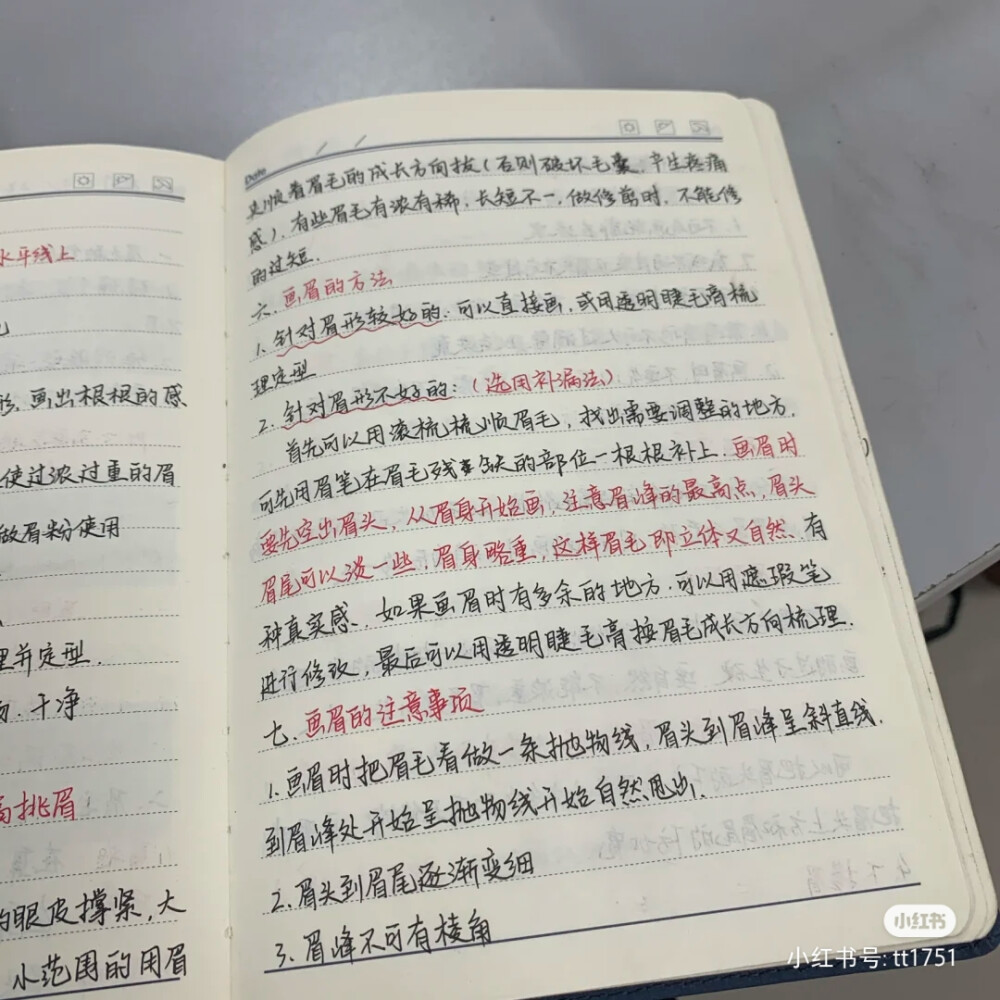 水平线上
形，画出根根的感
使过浓过重的眉
做眉粉使用
理并定型．
干净
高挑眉
的眼皮撑紧，大
小范围的用眉
Date
顺着眉毛的成长方向拔（否则破坏毛囊，产生疼痛
感），有些眉毛有浓有稀，长短不一，做修剪时，不能修
的过短．
六．画眉的方法
1．针对眉形较好的：可以直接画，或用透明睫毛膏梳
理定型
2．针对眉形不好的：（选用补漏法）
首先可以用滚梳梳顺眉毛，找出需要调整的地方．
可先用眉笔在眉毛残缺的部位一根根补上．画眉时
要先空出眉头，从眉身开始画，注意眉峰的最高点，眉头
眉尾可以淡一些，眉身略重，这样眉毛即立体又自然、有
种真实感．如果画眉时有多余的地方．可以用遮瑕笔
进行修改，最后可以用透明睫毛膏按眉毛成长方向梳理．
七．画眉的注意事项
1．画眉时把眉毛看做一条抛物线，眉头到眉峰呈斜直线．
到眉峰处开始呈抛物线开始自然甩出．
2．眉头到眉尾逐渐变细
3．眉峰不可有棱角
小红书
小红书号: tt1751